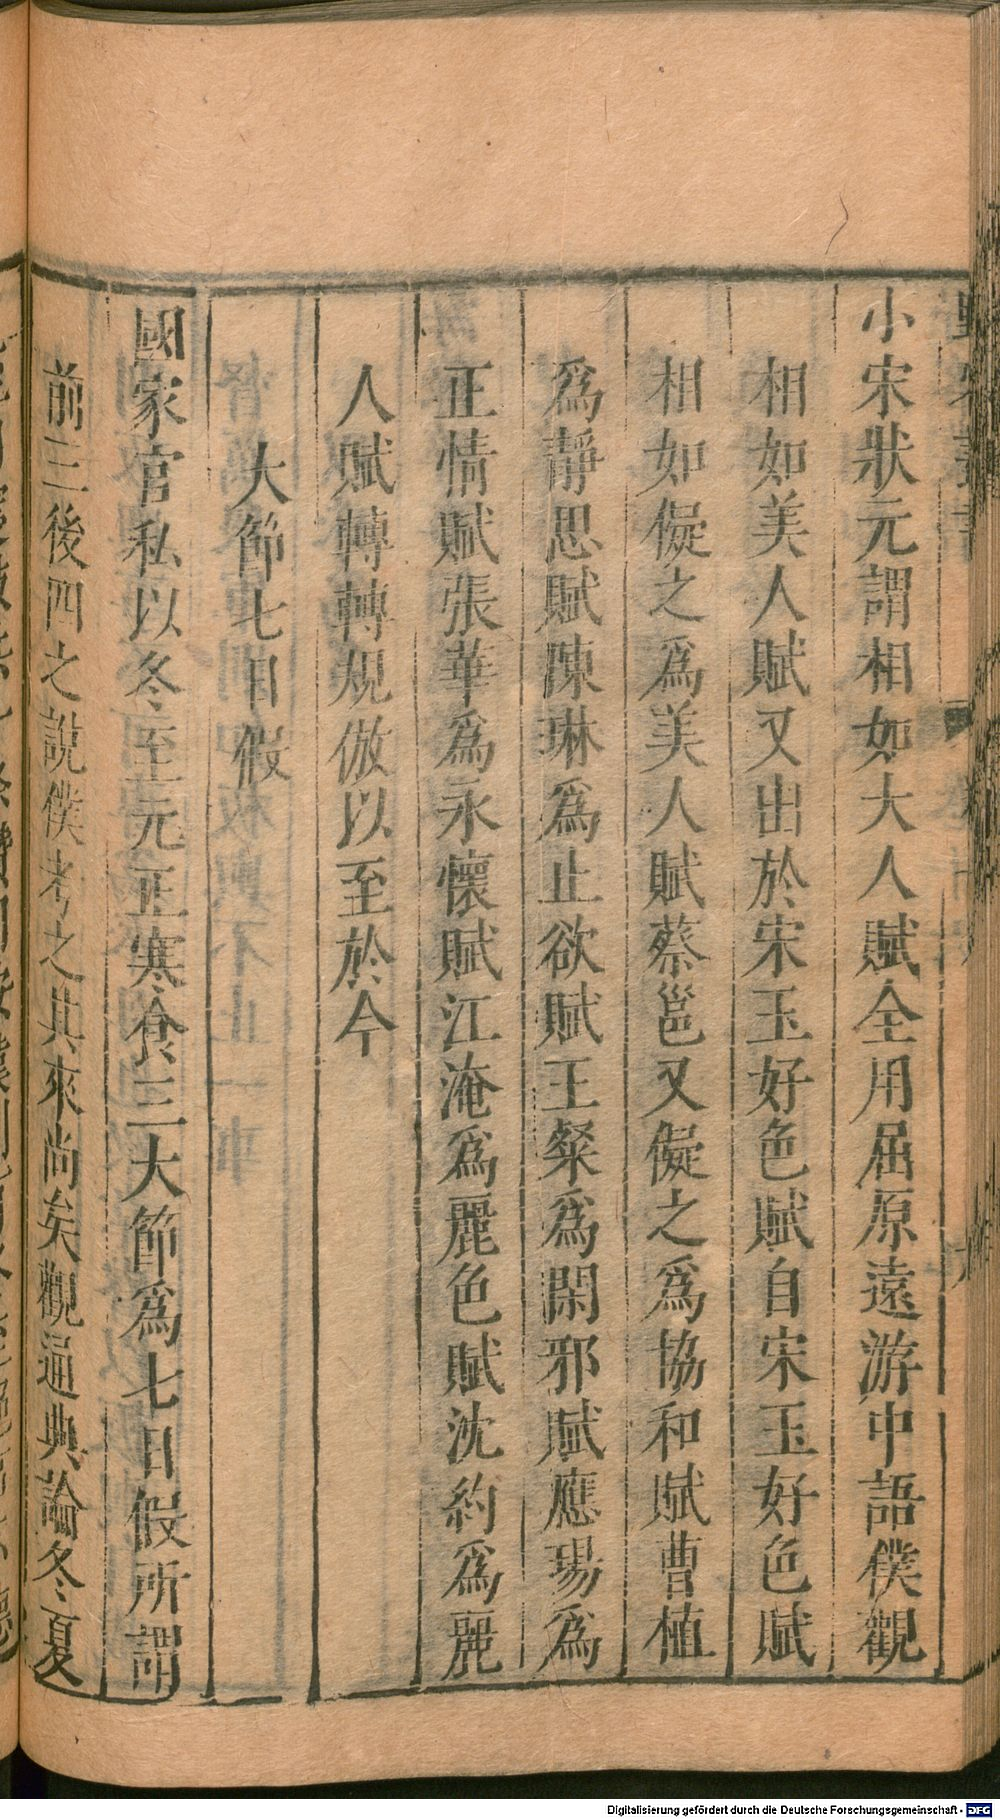 小宋狀元謂相如大人賦全用屈原遠游中語僕觀
相如美人賦又出於宋玉好色賦自宋玉好色賦
相如儗之爲美人賦蔡邕又儗之爲協和賦曹植
爲靜思賦陳琳爲止欲賦王粲爲閑邪賦應瑒爲
正情賦張華爲永懷賦江淹爲麗色賦沈約爲麗
人賦轉轉規倣以至於今
大節七日假
國家官私以冬至元正寒食三大節爲七日假所謂
前三後四之說僕考之其來尚矣觀通典論冬夏
Digitalisierung gefördert durch die Deutsche Forschungsgemeinschaft - DFG